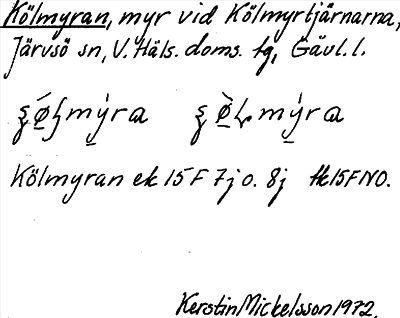 Kölmyran, myr vid Kölmyrtjärnarna,
Järvsö sn, V. Häls. doms. tg, Gävl. l.
Kölmyran ek 15F 7j o. 8j tk 15F NO.
Kerstin Mickelsson 1972.